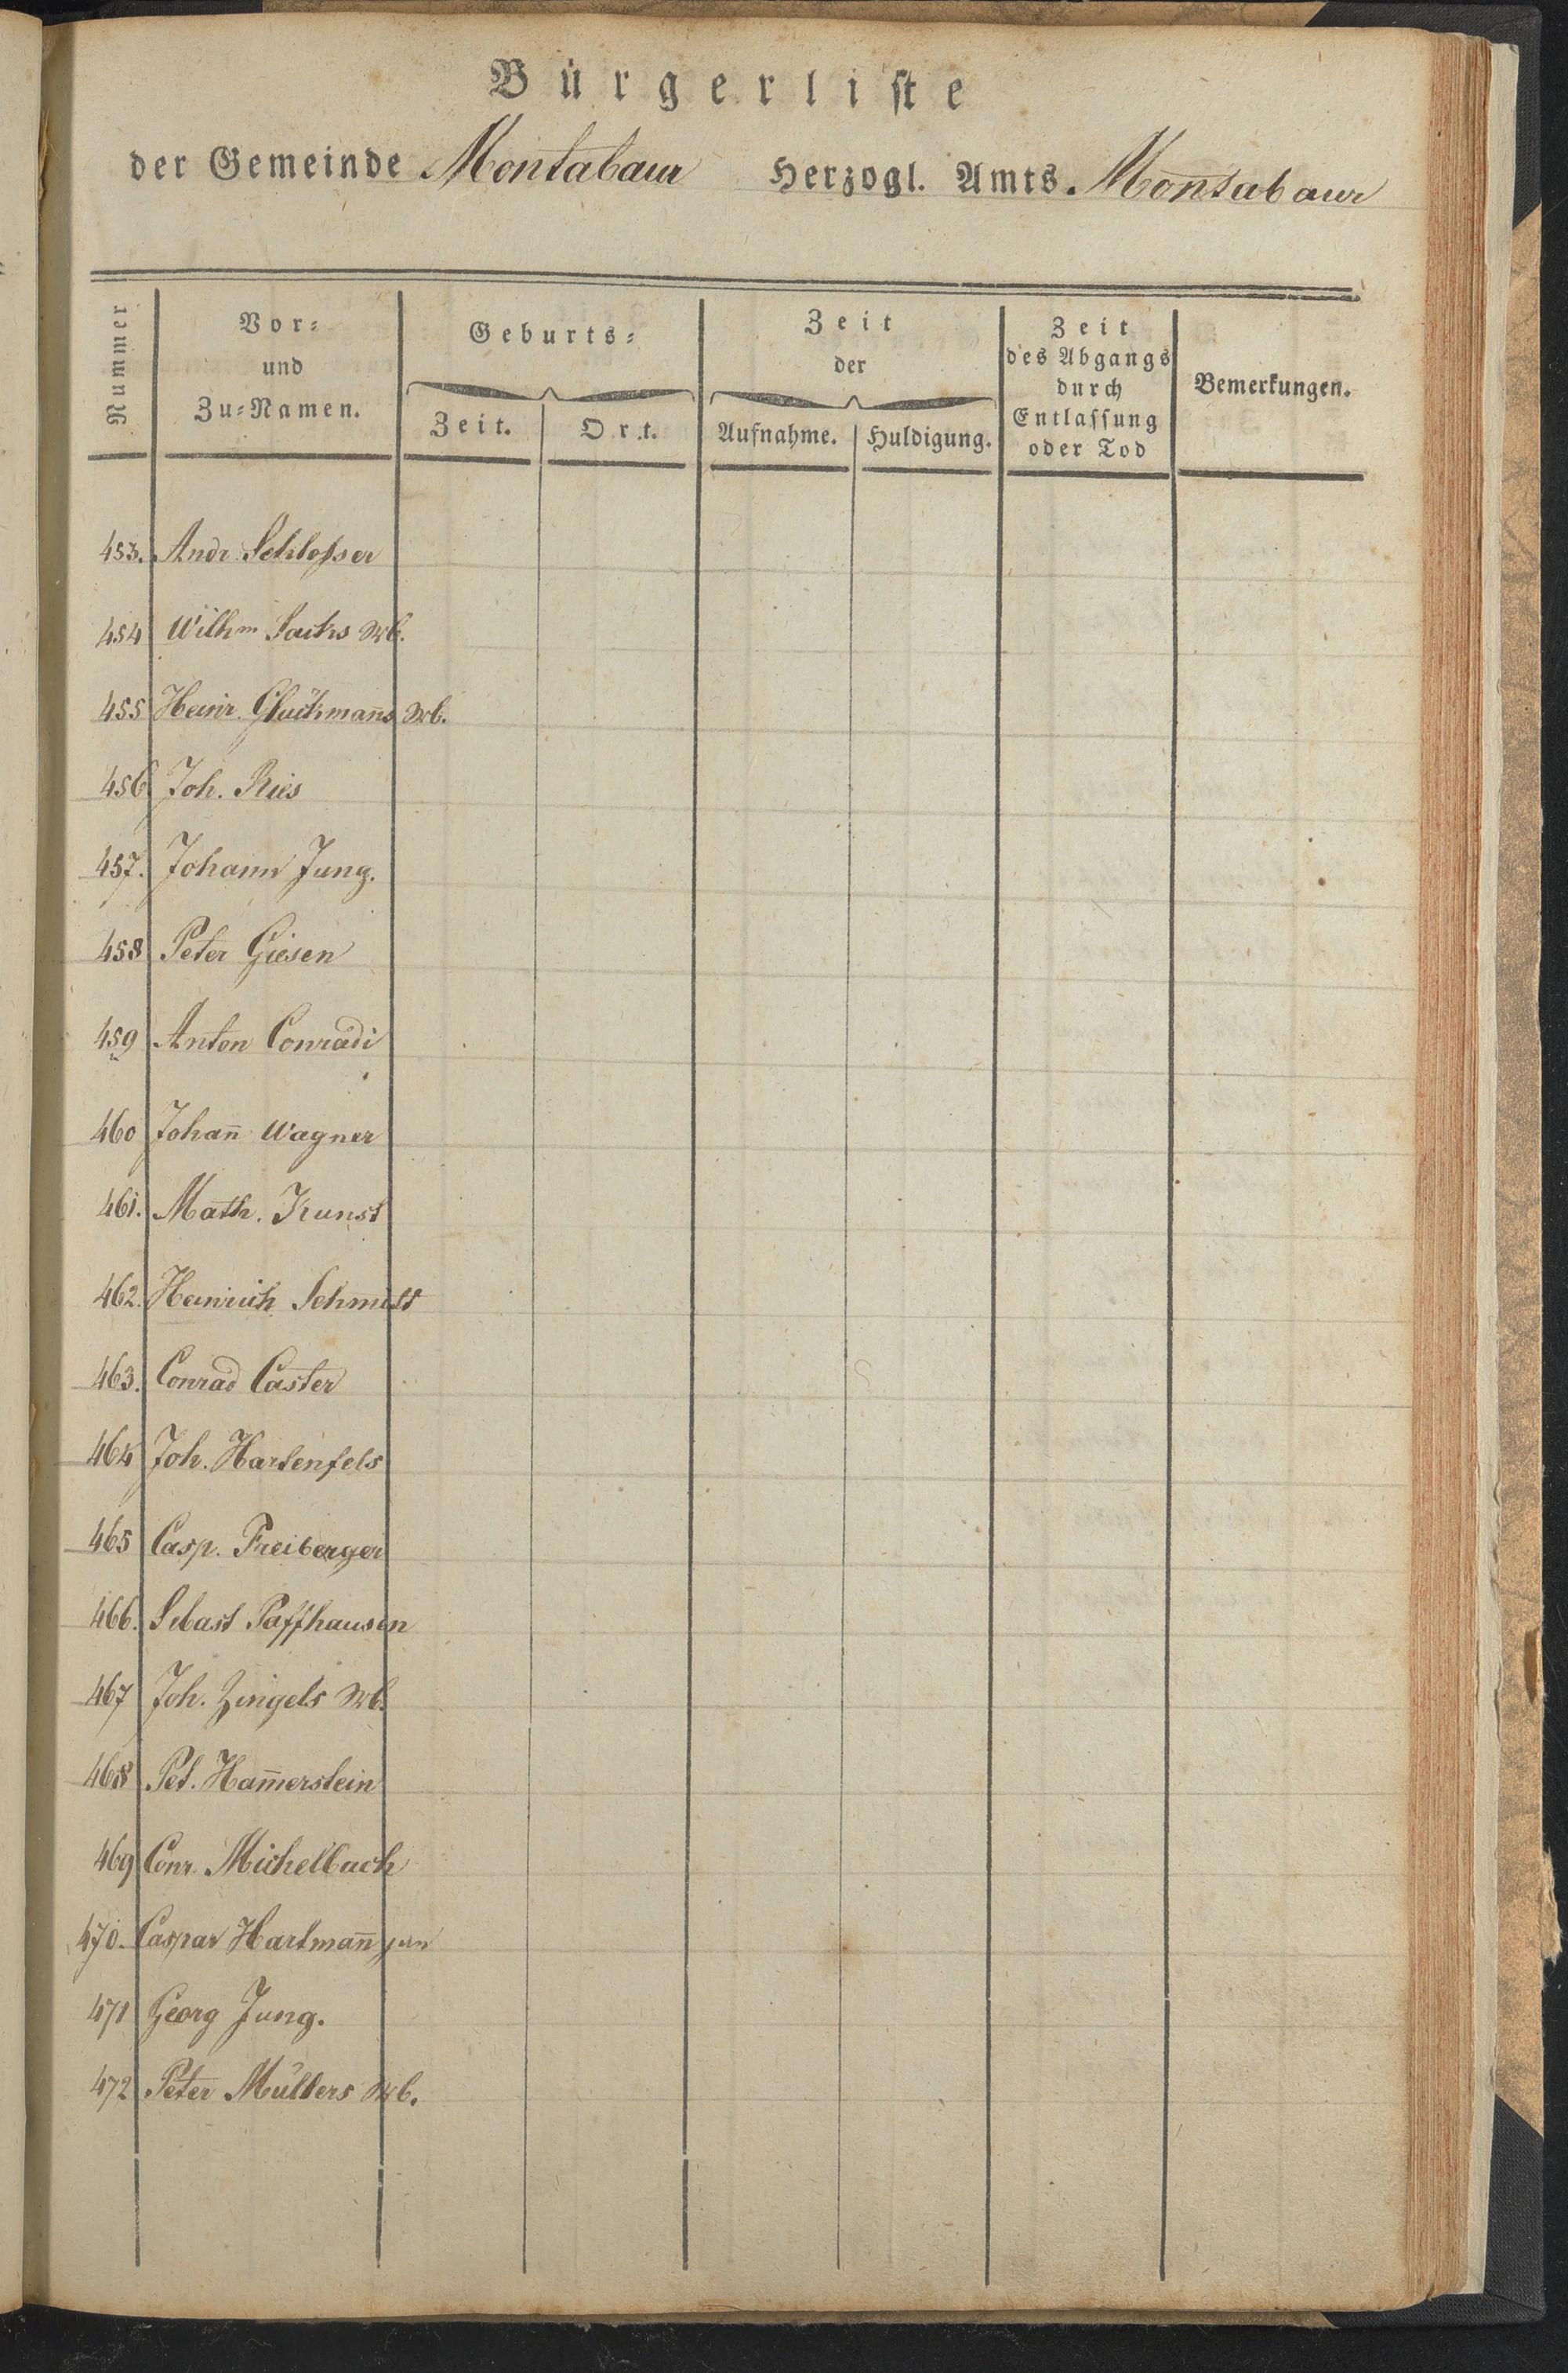 Bürgerliste
der Gemeinde Montabaur Herzogl. Amts Montabaur
Nummer
Vor=
und
Zu=Namen.
Geburts=
Zeit. Ort.
Zeit
der
Aufnahme. Huldigung.
Zeit
des Abgangs
durch
Entlassung
oder Tod
Bemerkungen.
453. Andr. Schlosser
454 Wilhm Sachs Wb.
455 Heinr. Gluckmañs Wb.
456 Joh. Ries
457. Johann Jung.
458 Peter Giesen
459 Anton Conradi
460 Johañ Wagner
461. Math. Kunst
462. Heinrich Schmidt
463. Conrad Caster
464 Joh. Hartenfels
465 Casp. Freiberger
466. Sebast Paffhausen
467 Joh. Zingels Wb.
468 Pet. Ham̄erstein
469 Conr. Michelbach
470. Caspar Hartmañ jun
471 Georg Jung.
472 Peter Müllers Wb.